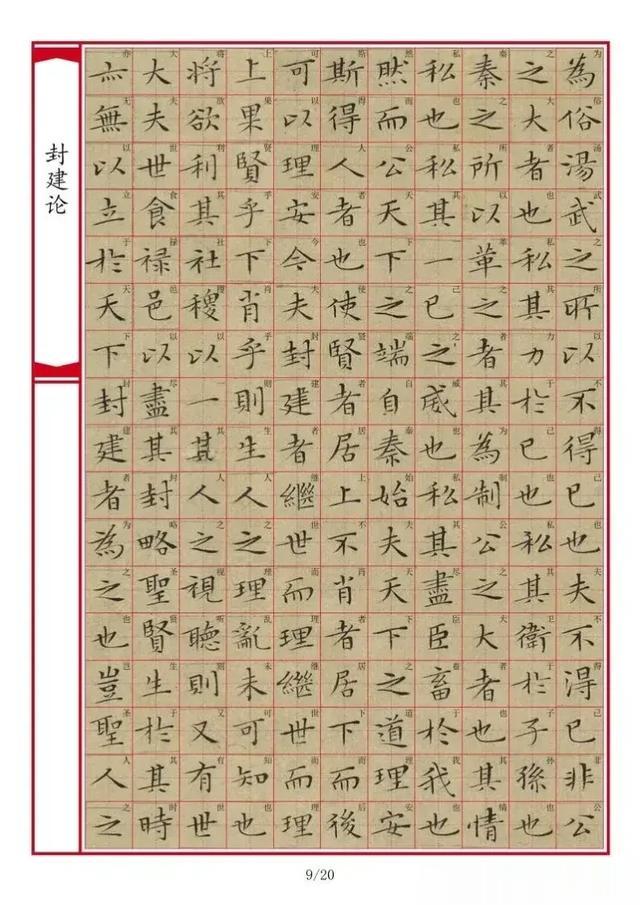 為俗湯武之所以不得已也夫不得已非公
之大者也私其力於已也私其衛於子孫也
秦之所以革之者其為制公之大者也其情
私也私其一已之威也私其盡臣畜於我也
然而公天下之端自秦始夫天下之道理安
斯得人者也使賢者居上不肖者居下而後
可以理安今夫封建者繼世而理繼世而理
上果賢乎下肖乎則生人之理亂未可知也
將欲利其社稷以一其人之視聽則又有世
大夫世食祿邑以盡其封略聖賢生於其時
亦無以立於天下封建者為之也豈聖人之
封建论
9/20